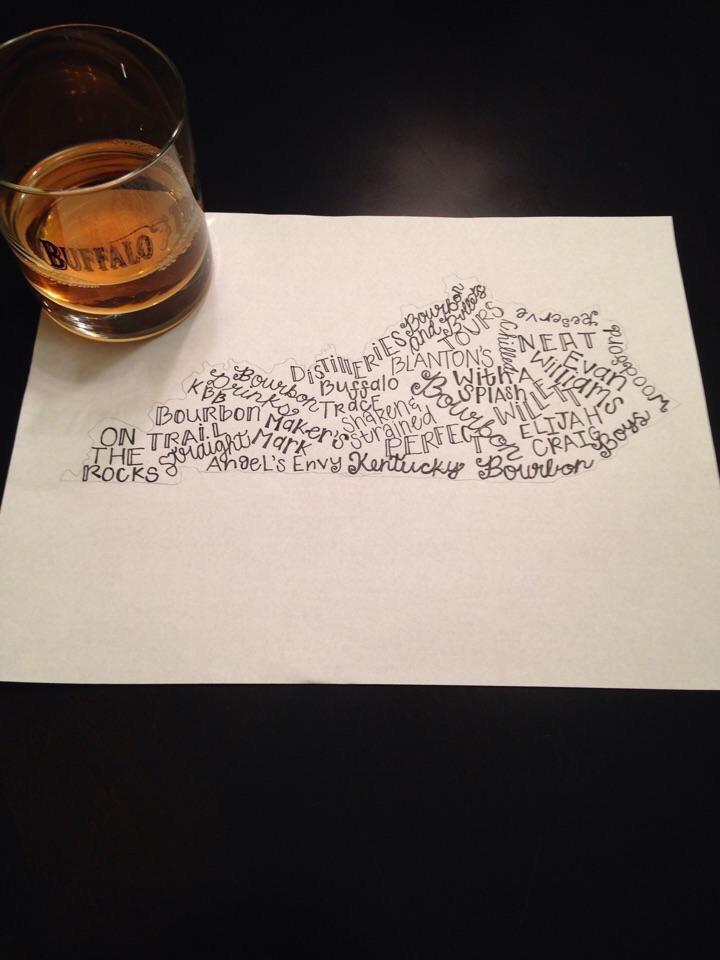 BUFFALO
Bourbon
and Bullets
TOURS
Chilled
Reserve
Woodford
NEAT
DISTILLERIES
BLANTON'S
Evan
Williams
KBB
Bourbon
Drinks
Buffalo
Trace
With A
SPLASH
WILLETT
Bourbon
Bourbon
TRAIL
Maker's
Mark
Shaken &
Strained
PERFECT
ELIJAH
CRAIG
Boys
ON
THE
ROCKS
Straight
Angel's Envy
Kentucky
Bourbon